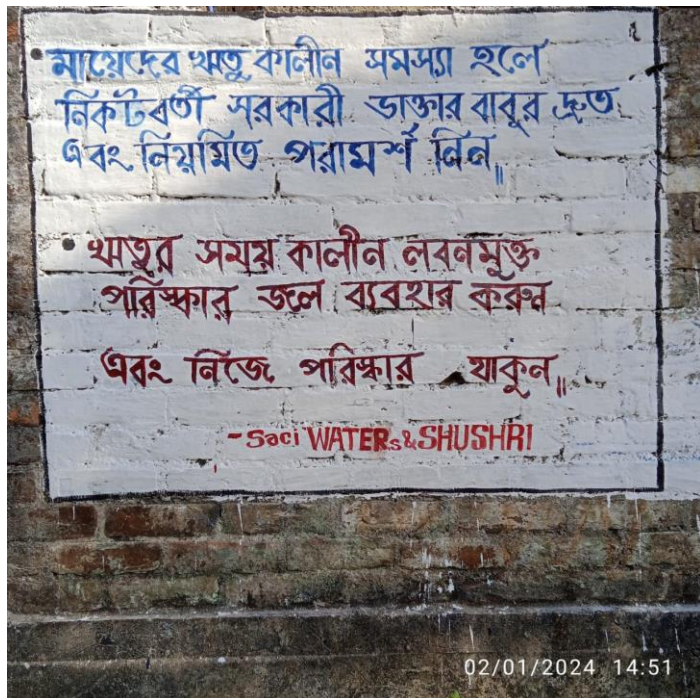 • মায়েদের ঋতু কালীন সমস্যা হলে
নিকটবর্তী সরকারী ডাক্তার বাবুর দ্রুত
এবং নিয়মিত পরামর্শ নিন॥
• ঋতুর সময় কালীন লবনমুক্ত
পরিস্কার জল ব্যবহার করুন
এবং নিজে পরিস্কার থাকুন॥
- Saci WATERs & SHUSHRI
02/01/2024 14:51